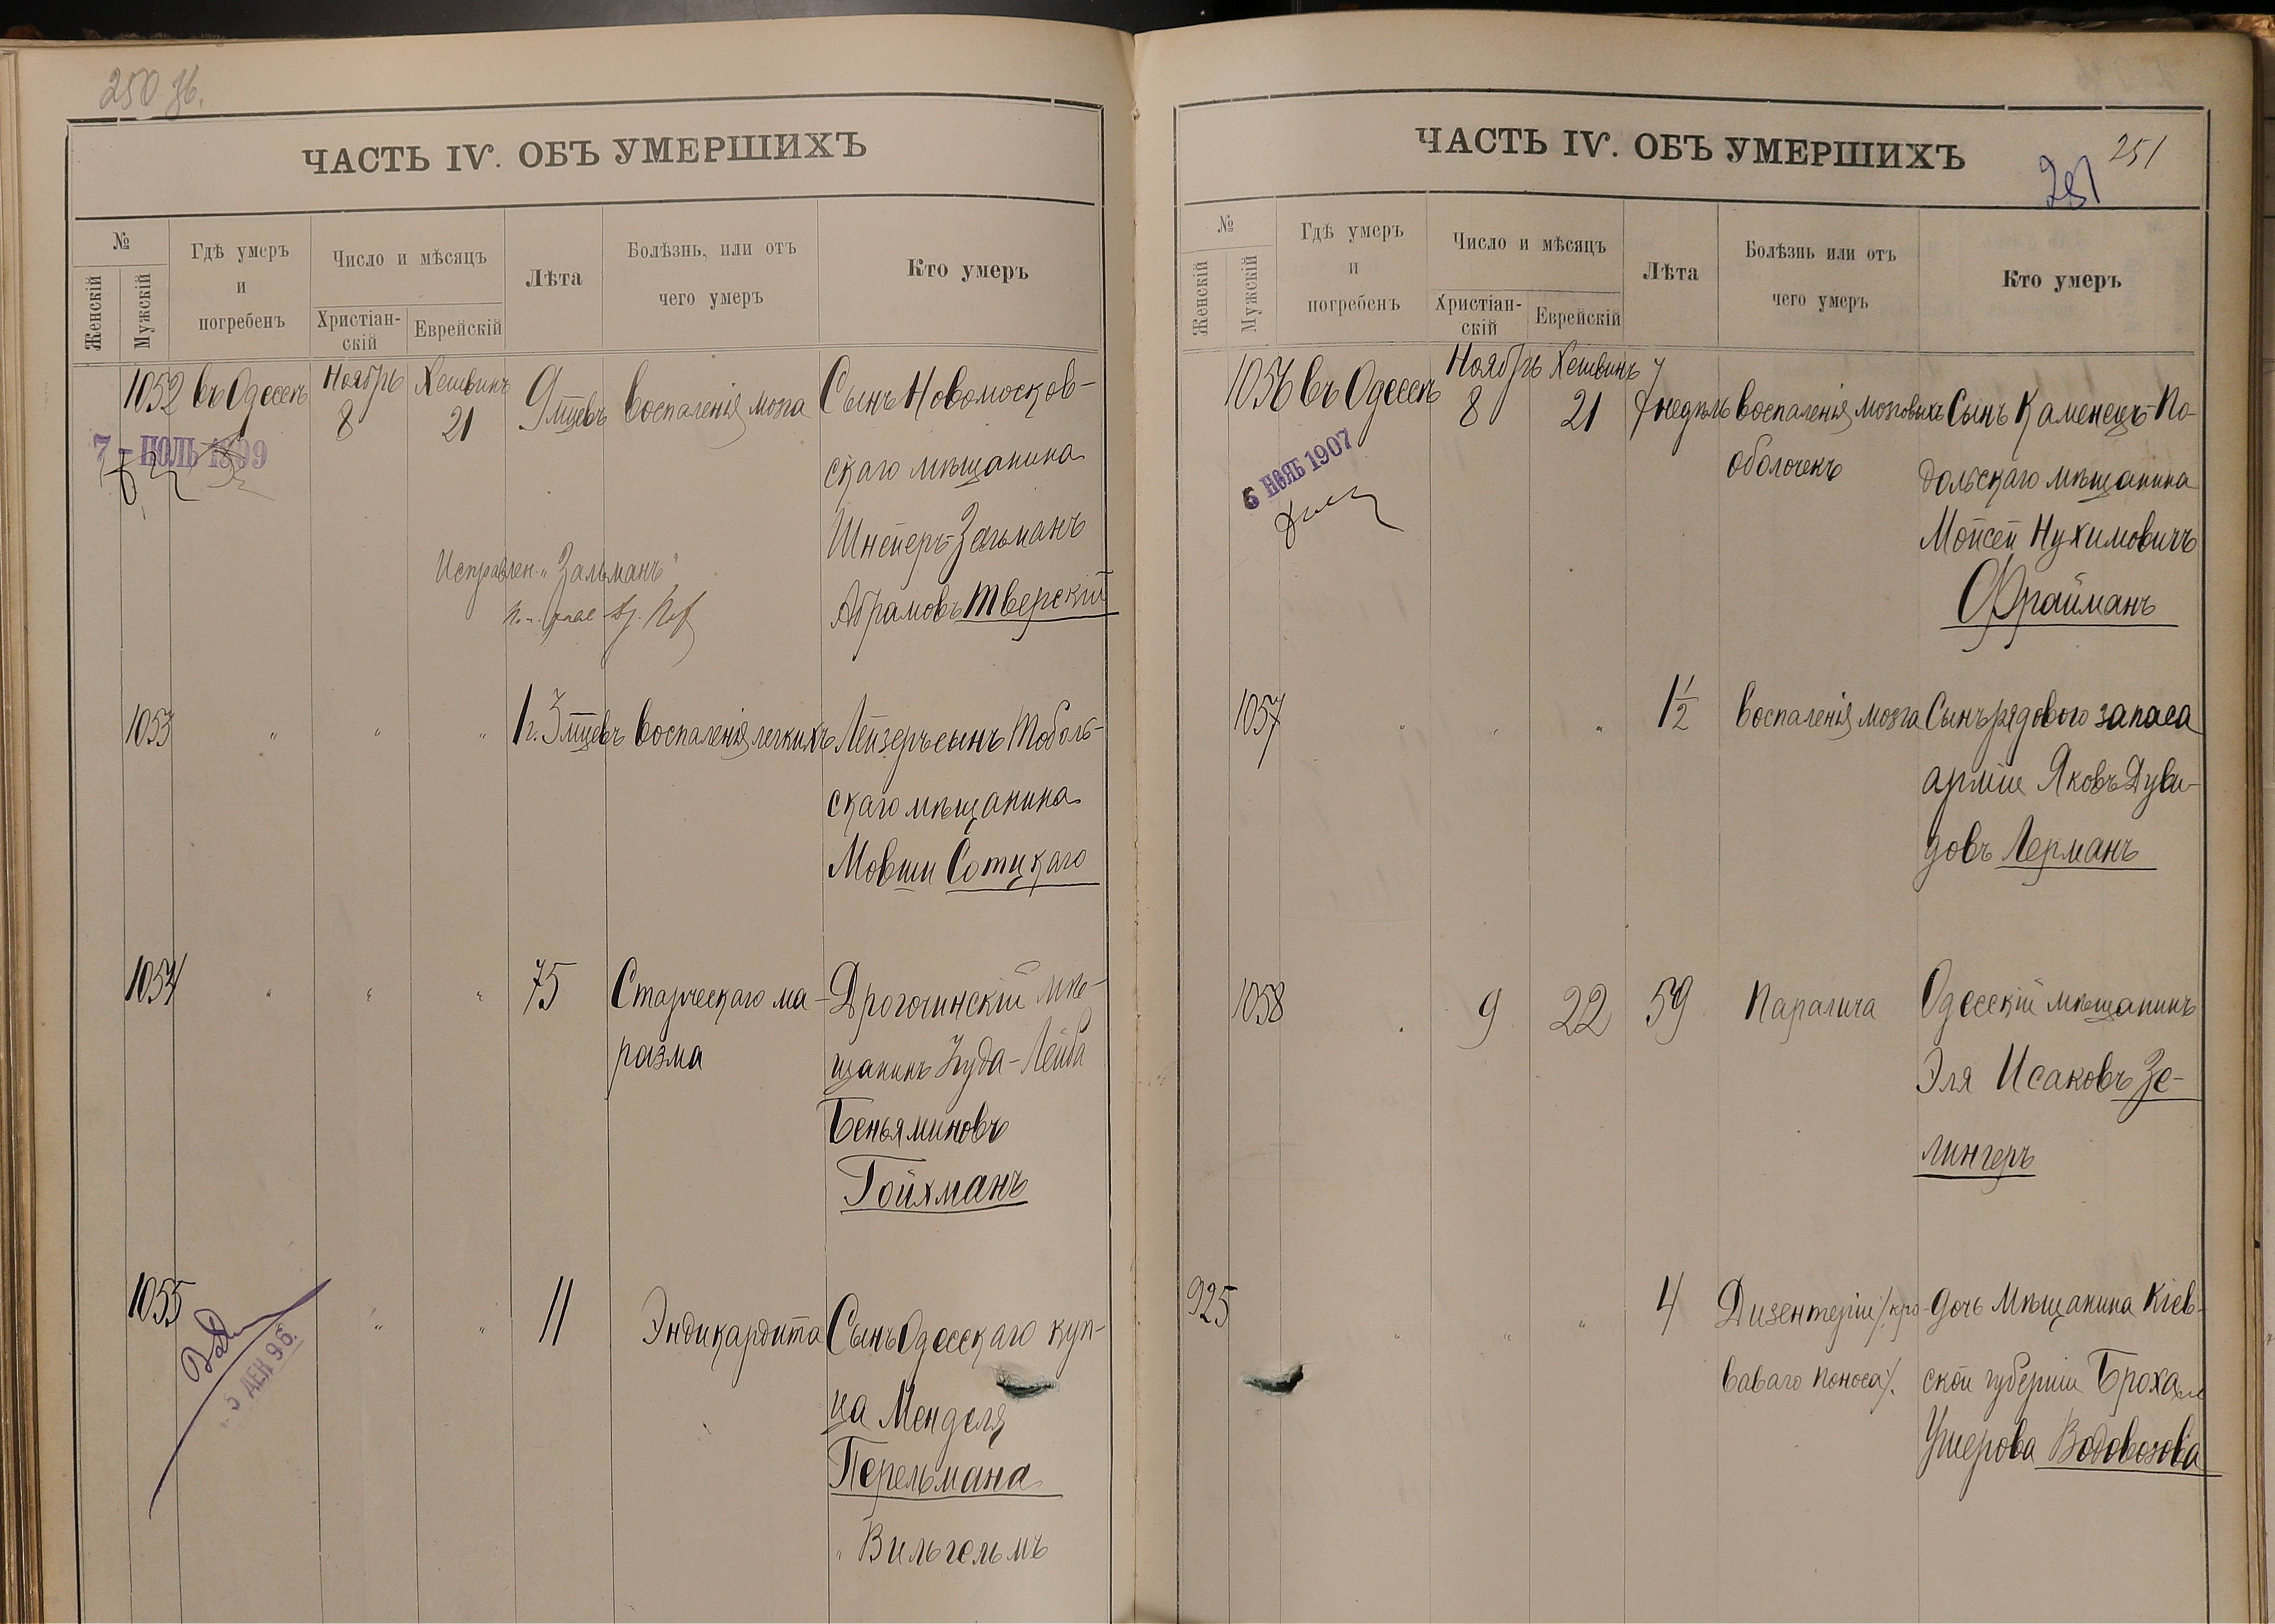 250 об.
ЧАСТЬ IV. ОБЪ УМЕРШИХЪ
№
Женскій
Мужскій
Гдѣ умеръ
и
погребенъ
Число и мѣсяцъ
Христіан-
скій
Еврейскій
Лѣта
Болѣзнь, или отъ
чего умеръ
Кто умеръ
1052 въ Одессѣ Ноябрь 8 Хешвинъ 21 9 мцевъ Воспаленія мозга Сынъ Новомосков-
скаго мѣщанина
Шнеперъ-Зальманъ
Абрамовъ Тверскій
7 - ІЮЛЬ 1899
Исправлен. "Зальманъ"
1053 " " " 1 г. 3 мцевъ Воспаленія легкихъ Лейзеръ сынъ Тоболь-
скаго мѣщанина
Мовши Сотцкаго
1054 " " " 75 Старческаго ма- Дрогочинскій мѣ-
разма щанинъ Іуда-Лейба
Беньяминовъ
Гойхманъ
1055 " " 11 Эндикардита Сынъ Одесскаго куп-
ца Менделя
Перельмана
"Вильгельмъ
5 ДЕК 96.
ЧАСТЬ IV. ОБЪ УМЕРШИХЪ
251
251
№
Женскій
Мужскій
Гдѣ умеръ
и
погребенъ
Число и мѣсяцъ
Христіан-
скій
Еврейскій
Лѣта
Болѣзнь или отъ
чего умеръ
Кто умеръ
1056 въ Одессѣ Ноябрь 8 Хешвинъ 21 7 недѣль Воспаленія мозговыхъ Сынъ Каменецъ-По-
оболочекъ дольскаго мѣщанина
Мойсей Нухимовичъ
Фрайманъ
6 НОЯБ 1907
1057 " " " 1 1/2 Воспаленія мозга Сынъ рядового запаса
арміи Яковъ Дуви-
довъ Лерманъ
1058 " 9 22 59 Паралича Одесскій мѣщанинъ
Эля Исаковъ Зе-
лингеръ
925 " " " 4 Дизентеріи /кро- дочь Мѣщанина Кіев-
ваваго поноса/. ской губерніи Броха
Ушерова Водовозова